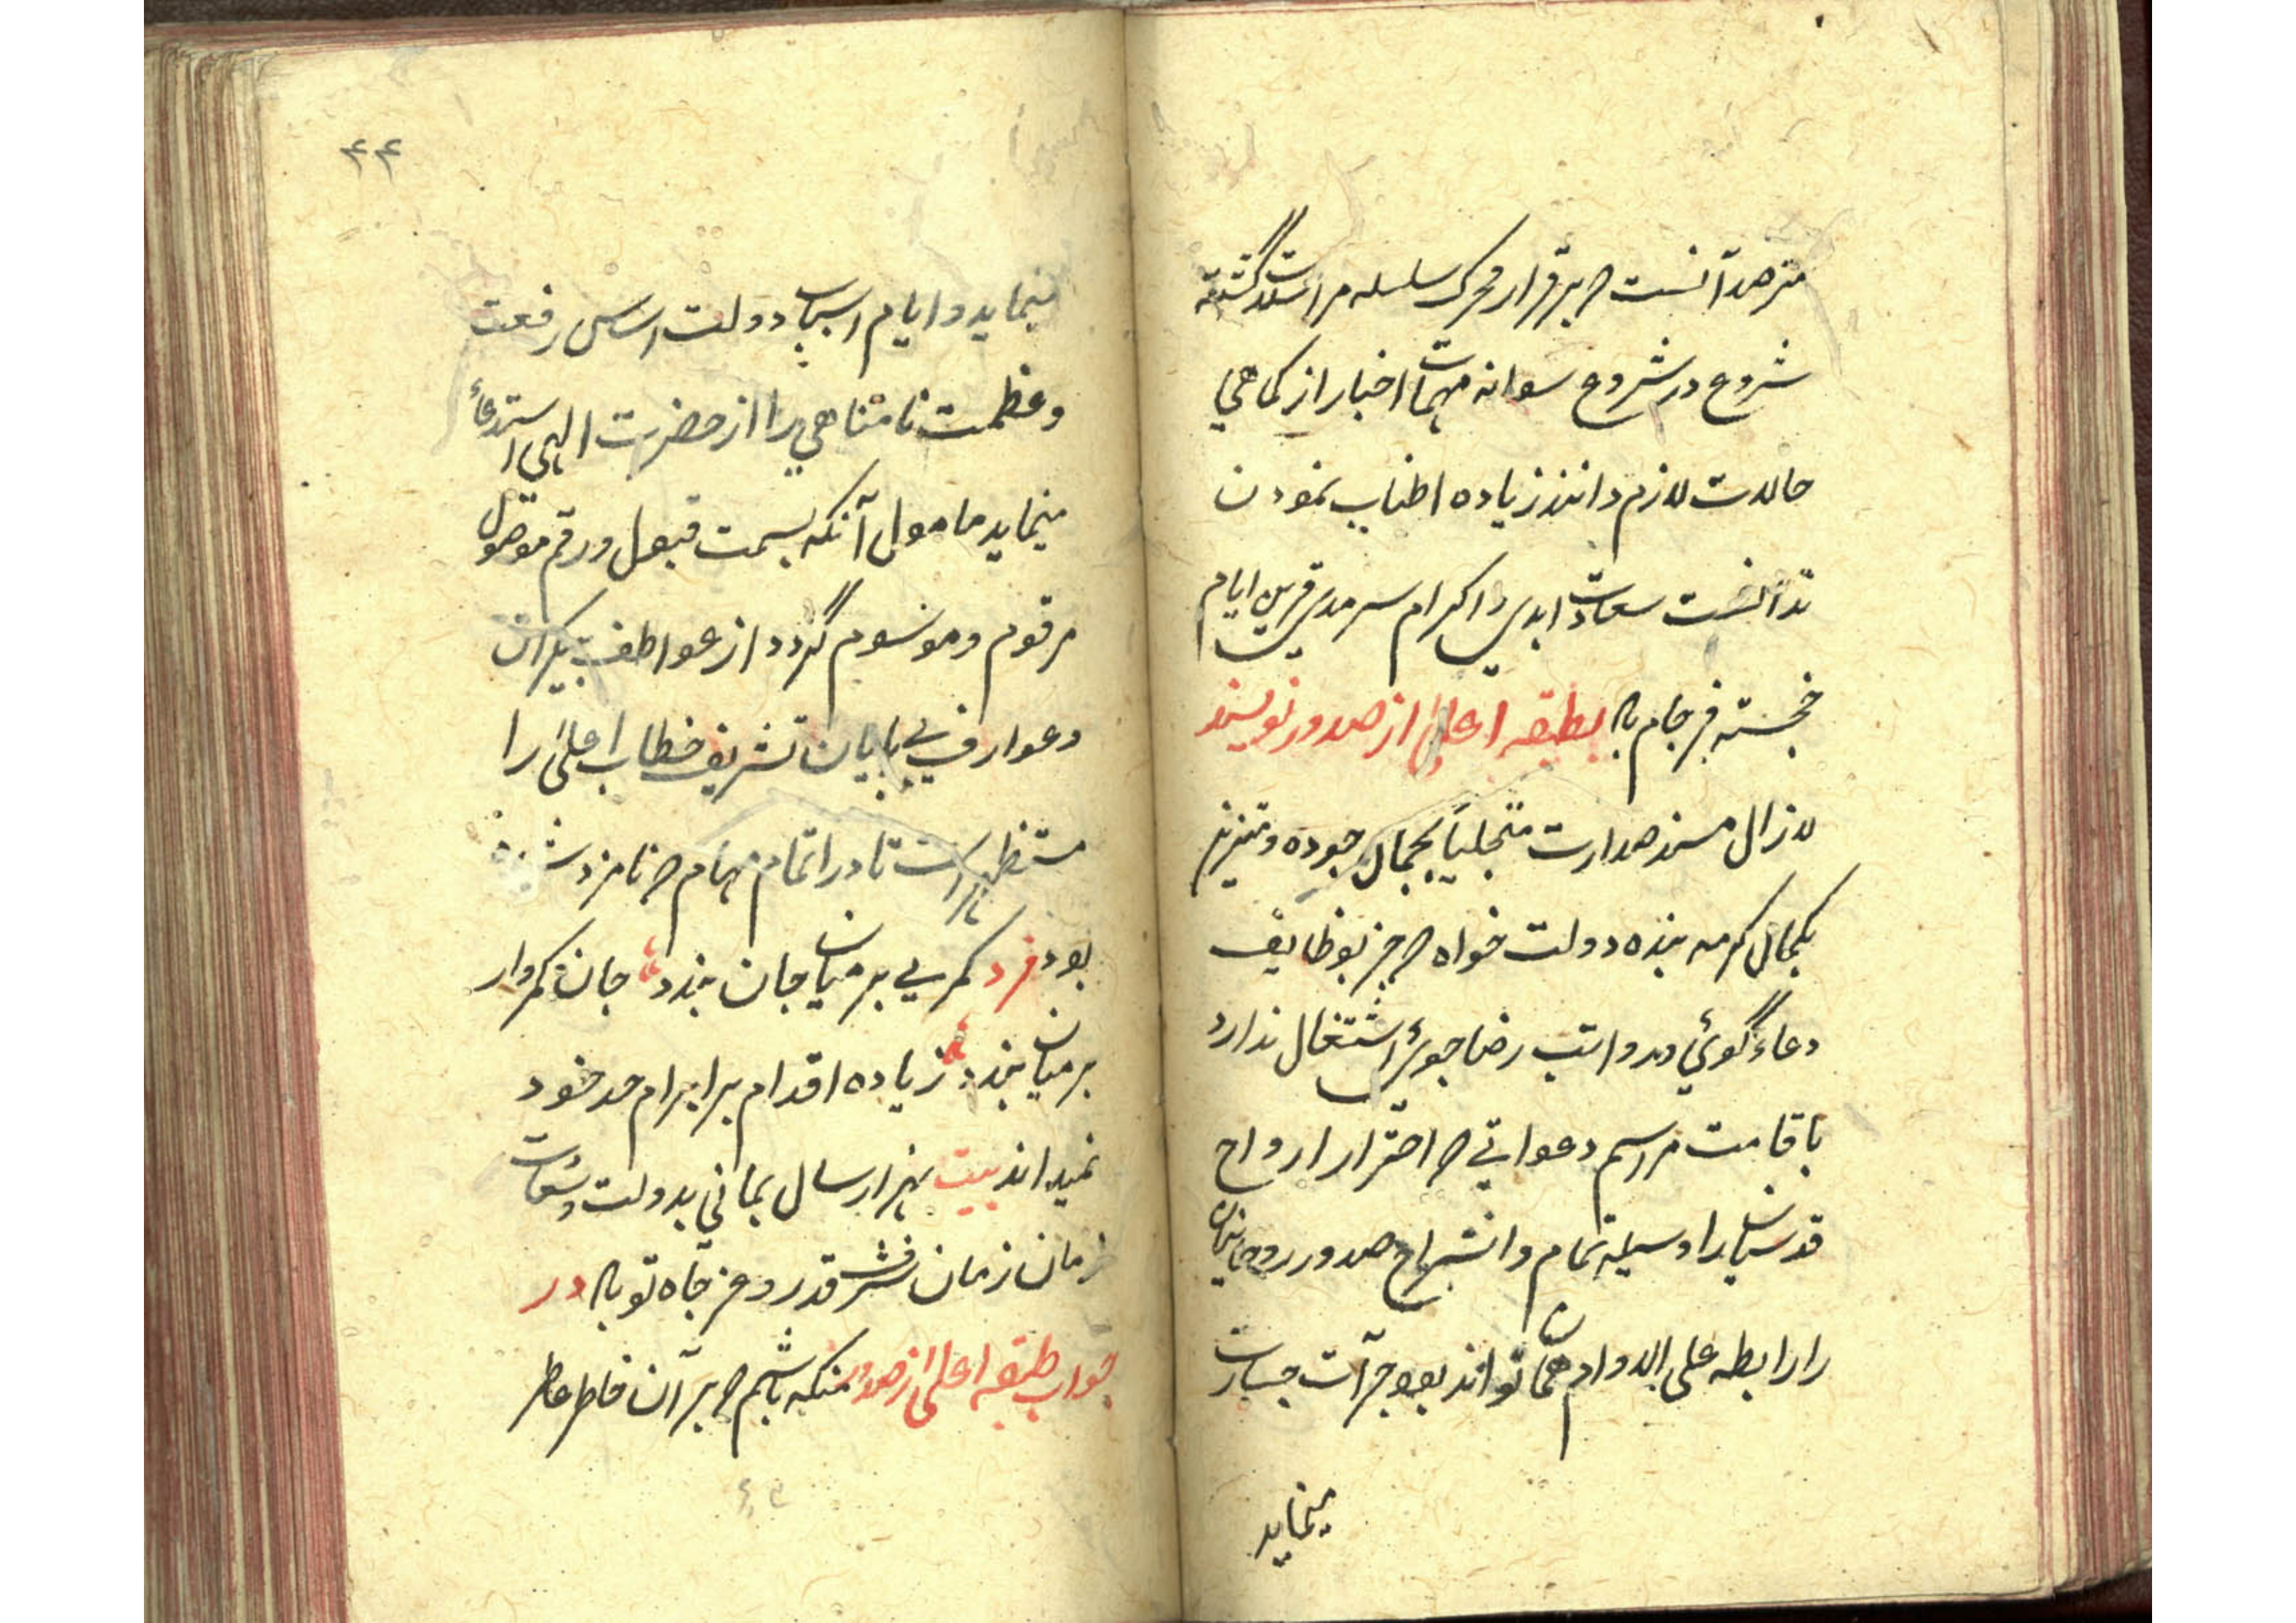 مترصد آنست که برقرار محرک سلسله مراسلات گشته
شروع در شروع سوانه مهمات اخبار از کماهی
حالات لازم دانند زیاده اطناب نمودن
ندانست سعادت ابدی و اکرام سرمدی قرین ایام
خجسته فرجام باد بطبقه اعلی از صدور نویسند
لازال مسند صدارت متجلیاً بجمال جوده و
بکمال کرمه بنده دولت خواه که جز بوظایف
دعاء گوئی و رواتب رضا جوئی اشتغال ندارد
باقامت مراسم دعواتی که احترار ارواح
قدسیان را وسیله تمام و انشراح صدور روحانیان
را رابطه علی الدوام همان تواند بود جرآت جسارت
مینماید
۴۴
مینماید و ایام اسباب دولت اساس رفعت
و عظمت نامتناهی را از حضرت الهی استدعاء
مینماید مامول آنکه بسمت قبول و رقم موصول
مرقوم و موسوم گردد از عواطف بیکران
و عوارف بی پایان تشریف خطاب اعلی را
مستظهر است تا در اتمام مهام که نامزد شده
بود فرد کمر بی بر میان جان بندد جان کمروار
بر میان بندد زیاده اقدام بر ابرام حد خود
نمیداند بیت هزار سال بمانی بدولت و سعادت
زمان زمان شرف قدر و عز جاه تو باد در
جواب طبقه اعلی از صدور منکه باشم که بر آن خاطر عاطر